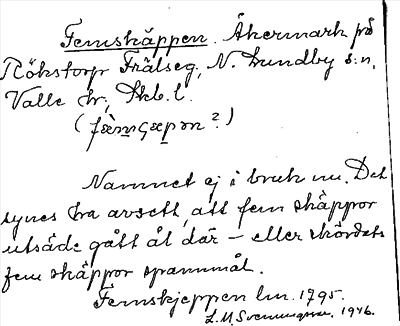 Femskäppen. Åkermark på
Rökstorp Frälseg, N. Lundby s:n,
Valle hr, Skb. l.
(
Namnet ej i bruk nu. Det
synes ha avsett, att fem skäppor
utsäde gått åt där – eller skördats
fem skäppor spannmål.
Femskjeppen lm. 1795.
L. M. Svenungsson. 1946.